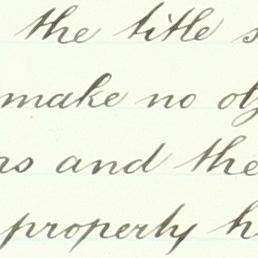 the title s
make no ob
rs and the
property h